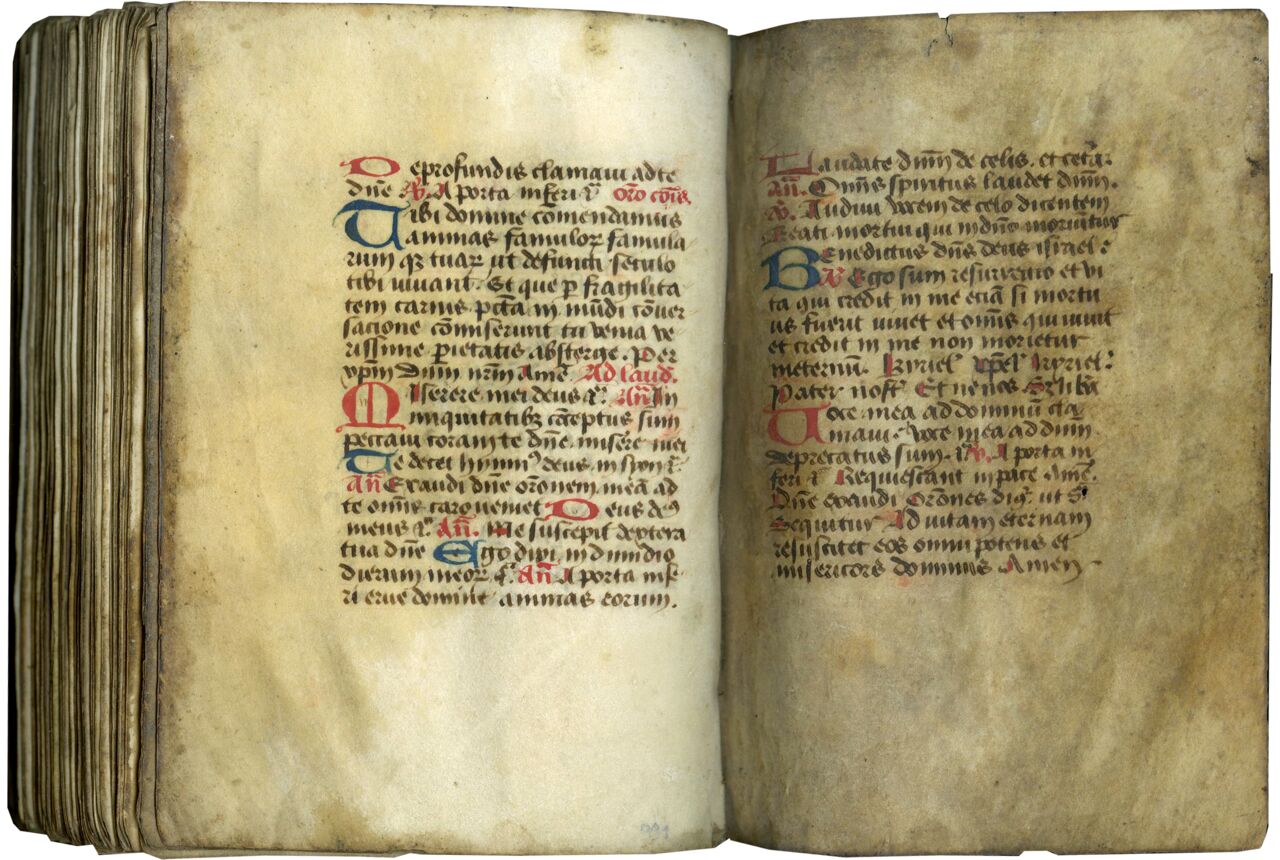 De profundis clamaui ad te
dn̄e ℣. A porta inferi ꝶ Oro cōis
Tibi domine cōmendamus
animas famuloꝝ famula
rum qꝫ tuaꝝ ut defuncti seculo
tibi uiuant. Et que ꝑ fragilita
tem carnis pctā in mūdi cōuer
sacione cōmiserunt tu uenia ue
rissime pietatis absterge. Per
xpm̄ dnm̄ nrm̄ Amē Ad laud.
Miserere mei deus Añ In
iniquitatibꝫ cōceptus sum
peccaui coram te dn̄e misere mei
Te decet himnꝰ deus in syon
Añ Exaudi dn̄e oronem meā ad
te omīs caro ueniet Deus deꝰ
meus Añ. Me suscepit dextera
tua dn̄e Ego dixi in dimidio
dierum meoꝝ Añ A porta infe
ri erue domine animas eorum.
Laudate dnm̄ de celis. et ceta
Añ. Omīs spiritus laudet dnm̄.
℣. Audiui uocem de celo dicentem
Beati mortui qui in dn̄o moriuntur
Benedictus dn̄s deus israel
Añ Ego sum resurrectio et ui
ta qui credit in me eciā si mortu
us fuerit uiuet et omīs qui uiuit
et credit in me non morietur
ineternū. kyriel xpel kyriel
Pater nost Et ne nos
Uoce mea ad dominū cla
maui uoce mea ad dnm̄
deprecatus sum. ℣. A porta in
feri Requiescant in pace Amē.
Dn̄e exaudi Orōnes ut sͣ
Sequitur Ad uitam eternam
resuscitet eos omnipotens et
misericors dominus Amen